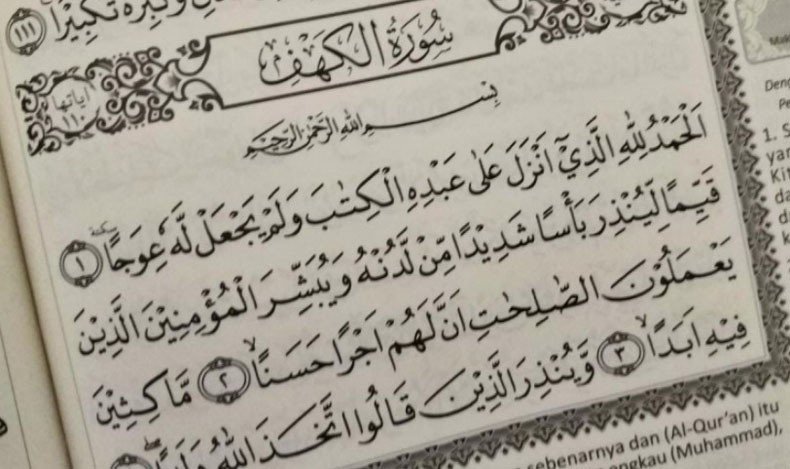 وَكَبِّرْهُ تَكْبِيْرًا ١١١
سُوْرَةُ الْكَهْفِ
اٰيَاتُهَا ١١٠
بِسْمِ اللّٰهِ الرَّحْمٰنِ الرَّحِيْمِ
اَلْحَمْدُ لِلّٰهِ الَّذِيْٓ اَنْزَلَ عَلٰى عَبْدِهِ الْكِتٰبَ وَلَمْ يَجْعَلْ لَّهٗ عِوَجًا ۜ ١
قَيِّمًا لِّيُنْذِرَ بَأْسًا شَدِيْدًا مِّنْ لَّدُنْهُ وَيُبَشِّرَ الْمُؤْمِنِيْنَ الَّذِيْنَ
يَعْمَلُوْنَ الصّٰلِحٰتِ اَنَّ لَهُمْ اَجْرًا حَسَنًاۙ ٢ مَّاكِثِيْنَ
فِيْهِ اَبَدًاۙ ٣ وَّيُنْذِرَ الَّذِيْنَ قَالُوا اتَّخَذَ اللّٰهُ وَلَدًا
sebenarnya dan (Al-Qur'an) itu
engkau (Muhammad),